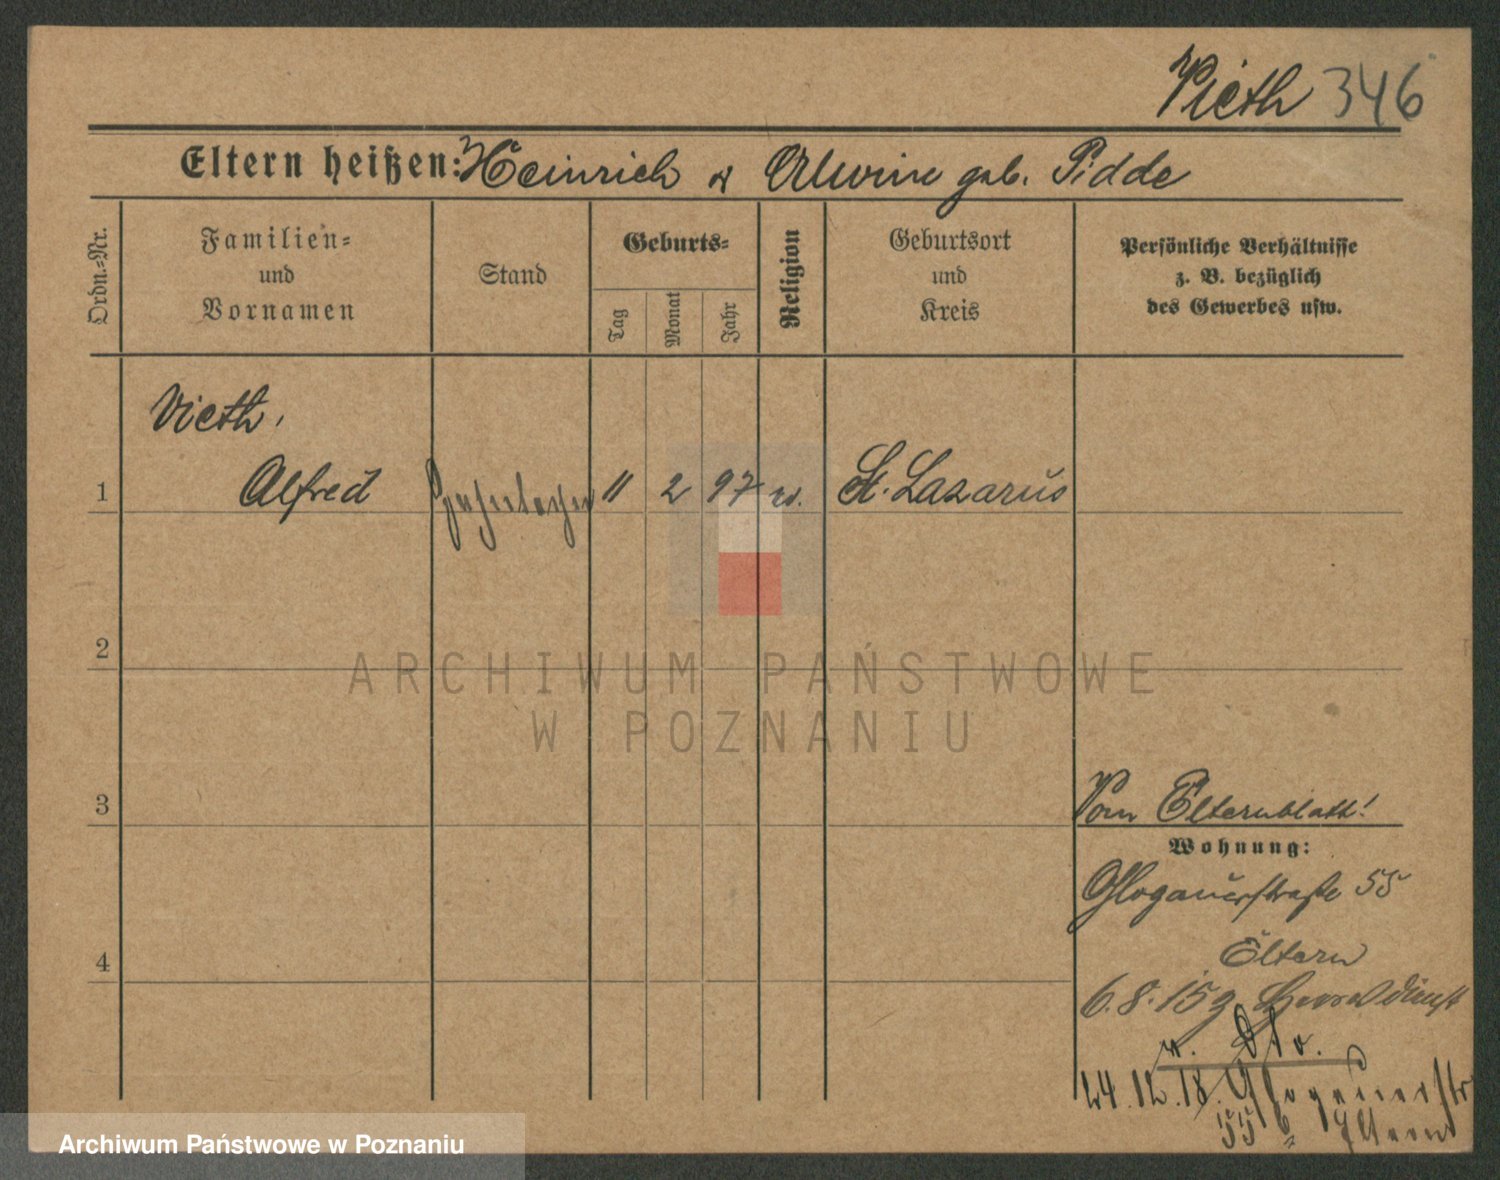 Vieth 346
Eltern heißen: Heinrich u Alwine geb. Pidde
Ordn.-Nr.
Familien-
und
Vornamen
Stand
Geburts-
Tag
Monat
Jahr
Religion
Geburtsort
und
Kreis
Persönliche Verhältnisse
z. B. bezüglich
des Gewerbes usw.
Vieth,
1 Alfred 11 2 97 ev. St. Lazarus
2
ARCHIWUM PAŃSTWOWE
W POZNANIU
3
Vom Elternblatt!
Wohnung:
Glogauerstraße 55
4
Eltern
6.8.15 z Heeresdienst
24.12.18. Glogauerstr
55 b Eltern
Archiwum Państwowe w Poznaniu